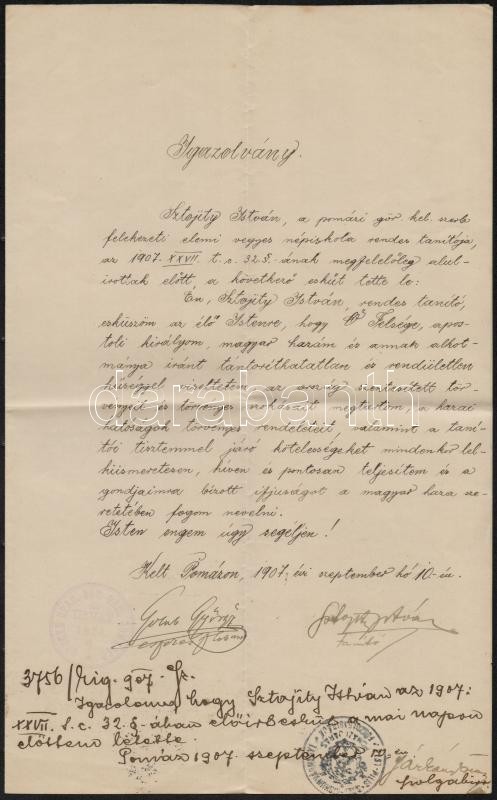 Igazolvány.
Sztojity István, a pomázi gör. kel. szerb
felekezeti elemi vegyes népiskola rendes tanítója,
az 1907. XXVII. t. c. 32. §.-ának megfelelőleg alul-
írottak előtt, a következő esküt tette le:
"Én, Sztojity István, rendes tanító,
esküszöm az élő Istenre, hogy Ő Felsége, apos-
toli királyom, magyar hazám és annak alkot-
mánya iránt tántoríthatatlan és rendületlen
hűséggel viseltetem, az ország szentesített tör-
vényeit és törvényes szokásait megtartom, a hazai
hatóságok törvényes rendeleteit, valamint a taní-
tói tisztemmel járó kötelességeket mindenkor lel-
kiismeretesen, híven és pontosan teljesítem és a
gondjaimra bízott ifjuságot a magyar haza sze-
retetében fogom nevelni.
Isten engem úgy segéljen!
Kelt Pomázon, 1907. évi szeptember hó 10-én.
György
Sztojity István
tanító
3756/kig. 907. Sz.
Igazolom, hogy Sztojity István az 1907:
XXVII. t. c. 32. §-ában előírt esküt a mai napon
előttem letette.
Pomáz 1907. szeptember 10-én
darabanth